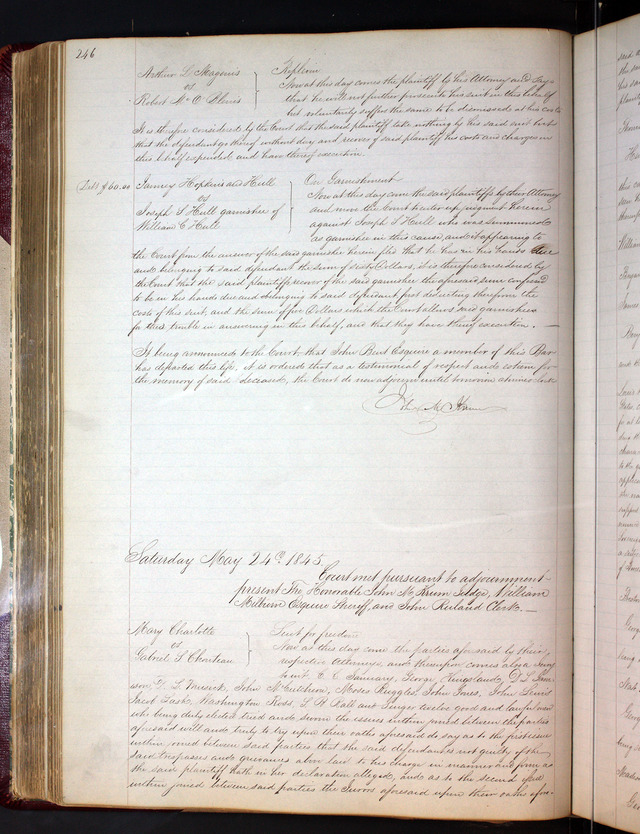 246
Arthur L Magenis } Replevin
vs Now at this day comes the plaintiff by his Attorney and says
Robert M O Blenis that he will not further prosecute his suit in this behalf
but voluntarily suffers the same to be dismissed at his costs
It is therefore considered by the Court that the said plaintiff take nothing by his said suit but
that the defendant go thereof without day and recover of said plaintiff his costs and charges in
this behalf expended and have thereof execution.
Debt $60.00 Janney Hopkins and Hull } On Garnishment
vs Now at this day come the said plaintiffs by their Attorney
Joseph S Hull garnishee of and move the Court to enter up judgment herein
William C Hull against Joseph S Hull who was summoned
as garnishee in this cause, and it appearing to
the Court from the answer of the said garnishee herein filed that he has in his hands due
and belonging to said defendant the sum of sixty Dollars, it is therefore considered by
the Court that the said plaintiffs recover of the said garnishee the aforesaid sum confessed
to be in his hands due and belonging to said defendant first deducting therefrom the
costs of this suit, and the sum of five Dollars which the Court allows said garnishee
for his trouble in answering in this behalf, and that they have thereof execution.
It being announced to the Court that John Bent Esquire a member of this Bar
has departed this life. it is ordered that as a testimonial of respect and esteem for
the memory of said deceased, the Court do now adjourn until tomorrow at nine oclock
Jn M Krum
Saturday May 24th 1845.
Court met pursuant to adjournment
present The Honorable John M Krum Judge, William
Milburn Esquire Sheriff, and John Ruland Clerk.
Mary Charlotte } Suit for freedom
vs Now at this day come the parties aforesaid by their
Gabriel S Chouteau respective Attorneys and thereupon comes also a Jury
to wit George Kingsland,
John McCutcheon, Moses Ruggles, John Jones, John Lewis
Jacob Washington Ross, good and lawful men
who being duly elected tried and sworn the issues within joined between the parties
aforesaid well and truly to try upon their oaths aforesaid do say as to the first issue
within joined between said parties that the said defendant is not guilty of the
said trespasses and grievances above laid to his charge in manner and form as
the said plaintiff hath in her declaration alleged, and as to the second issue
within joined between said parties the Jurors aforesaid upon their oaths afore-